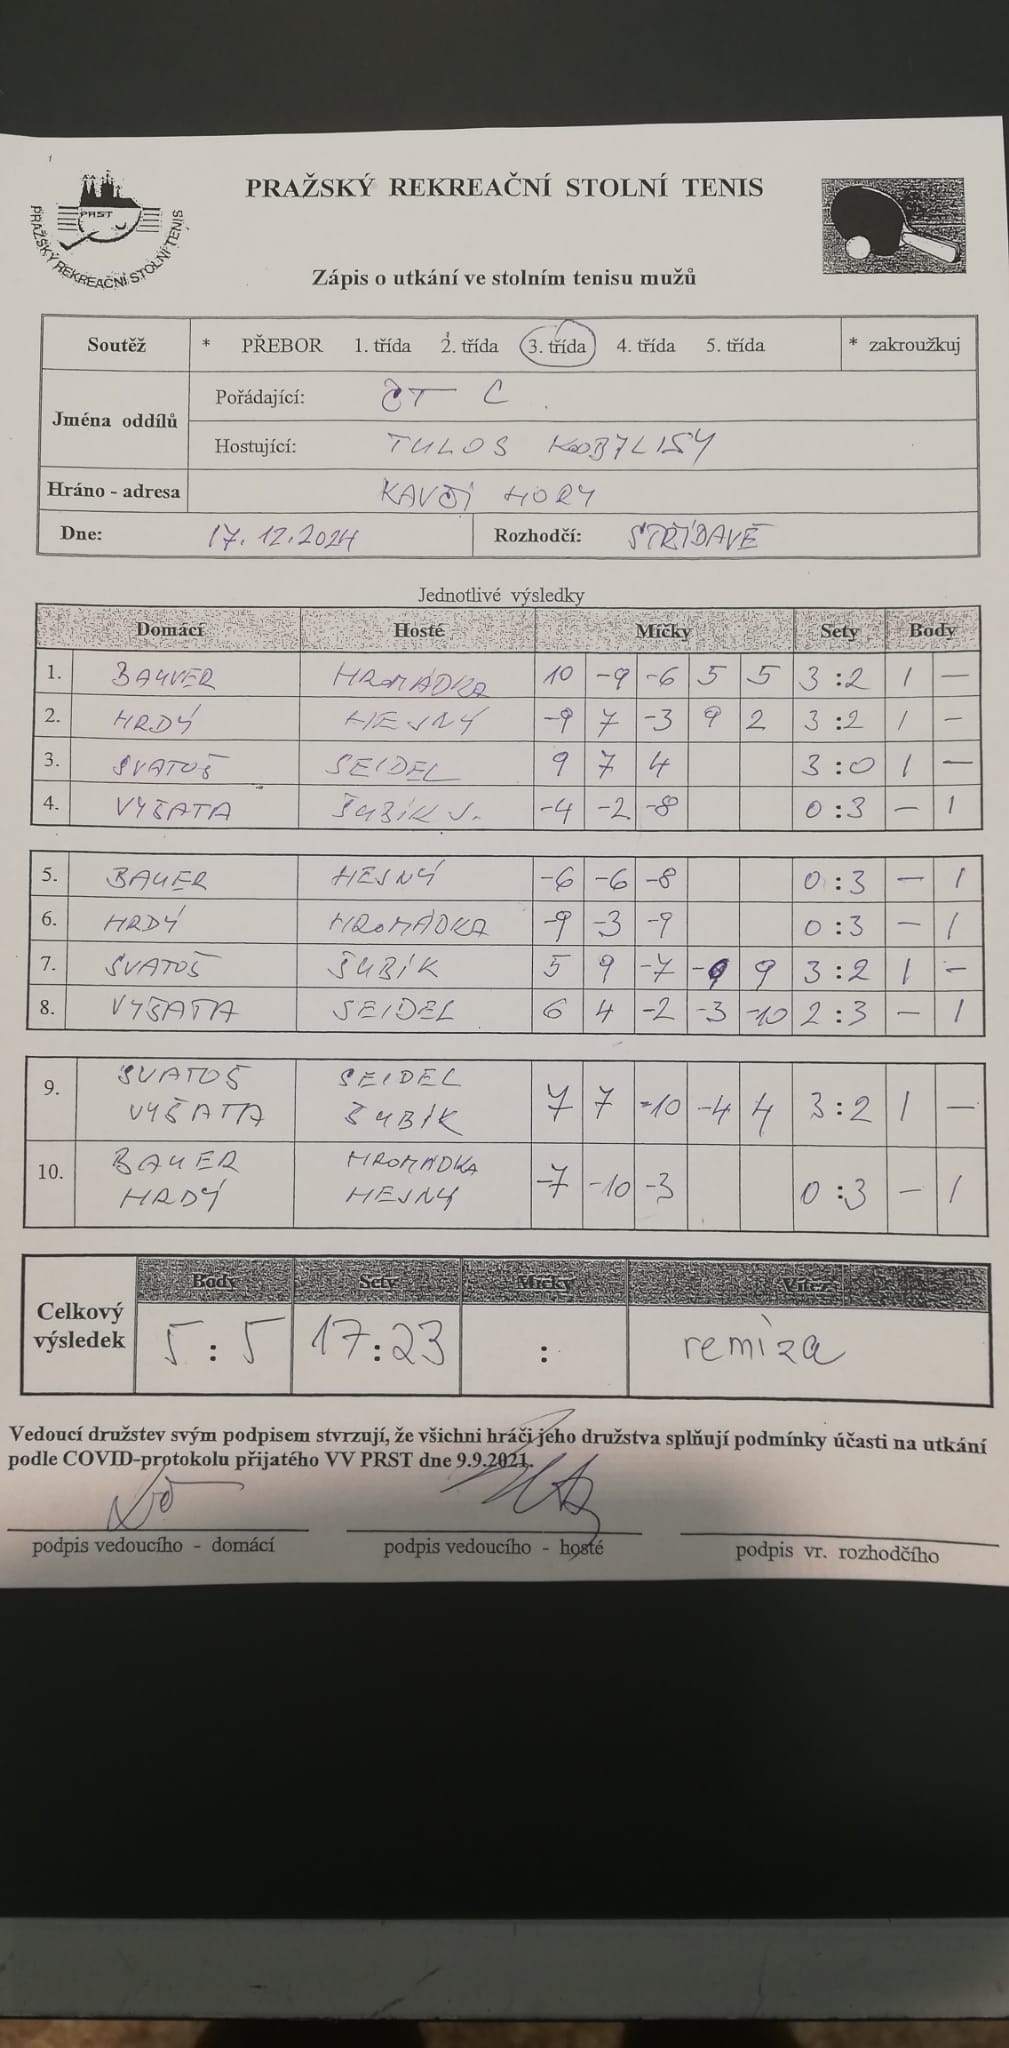 PRAŽSKÝ REKREAČNÍ STOLNÍ TENIS
PRST
PRAŽSKÝ REKREAČNÍ STOLNÍ TENIS
Zápis o utkání ve stolním tenisu mužů
Soutěž * PŘEBOR 1. třída 2. třída 3. třída 4. třída 5. třída * zakroužkuj
Jména oddílů
Pořádající: ČT C
Hostující: TULOS KOBYLISY
Hráno - adresa KAVČÍ HORY
Dne: 17.12.2024 Rozhodčí: STŘÍDAVĚ
Jednotlivé výsledky
Domácí Hosté Míčky Sety Body
1. BAUVER HROMÁDKA 10 -9 -6 5 5 3:2 1 -
2. HRDÝ HEJNÝ -9 7 -3 9 2 3:2 1 -
3. SVATOŠ SEIDEL 9 7 4 3:0 1 -
4. VYŠATA ŠUBÍK J. -4 -2 -8 0:3 - 1
5. BAUER HEJNÝ -6 -6 -8 0:3 - 1
6. HRDÝ HROMÁDKA -9 -3 -9 0:3 - 1
7. SVATOŠ ŠUBÍK 5 9 -7 -9 9 3:2 1 -
8. VYŠATA SEIDEL 6 4 -2 -3 -10 2:3 - 1
9. SVATOŠ SEIDEL
VYŠATA ŠUBÍK 7 7 -10 -4 4 3:2 1 -
10. BAUER HROMÁDKA
HRDÝ HEJNÝ -7 -10 -3 0:3 - 1
Body Sety Míčky Vítěz
Celkový
výsledek 5:5 17:23 : remíza
Vedoucí družstev svým podpisem stvrzují, že všichni hráči jeho družstva splňují podmínky účasti na utkání
podle COVID-protokolu přijatého VV PRST dne 9.9.2021.
podpis vedoucího - domácí podpis vedoucího - hosté podpis vr. rozhodčího